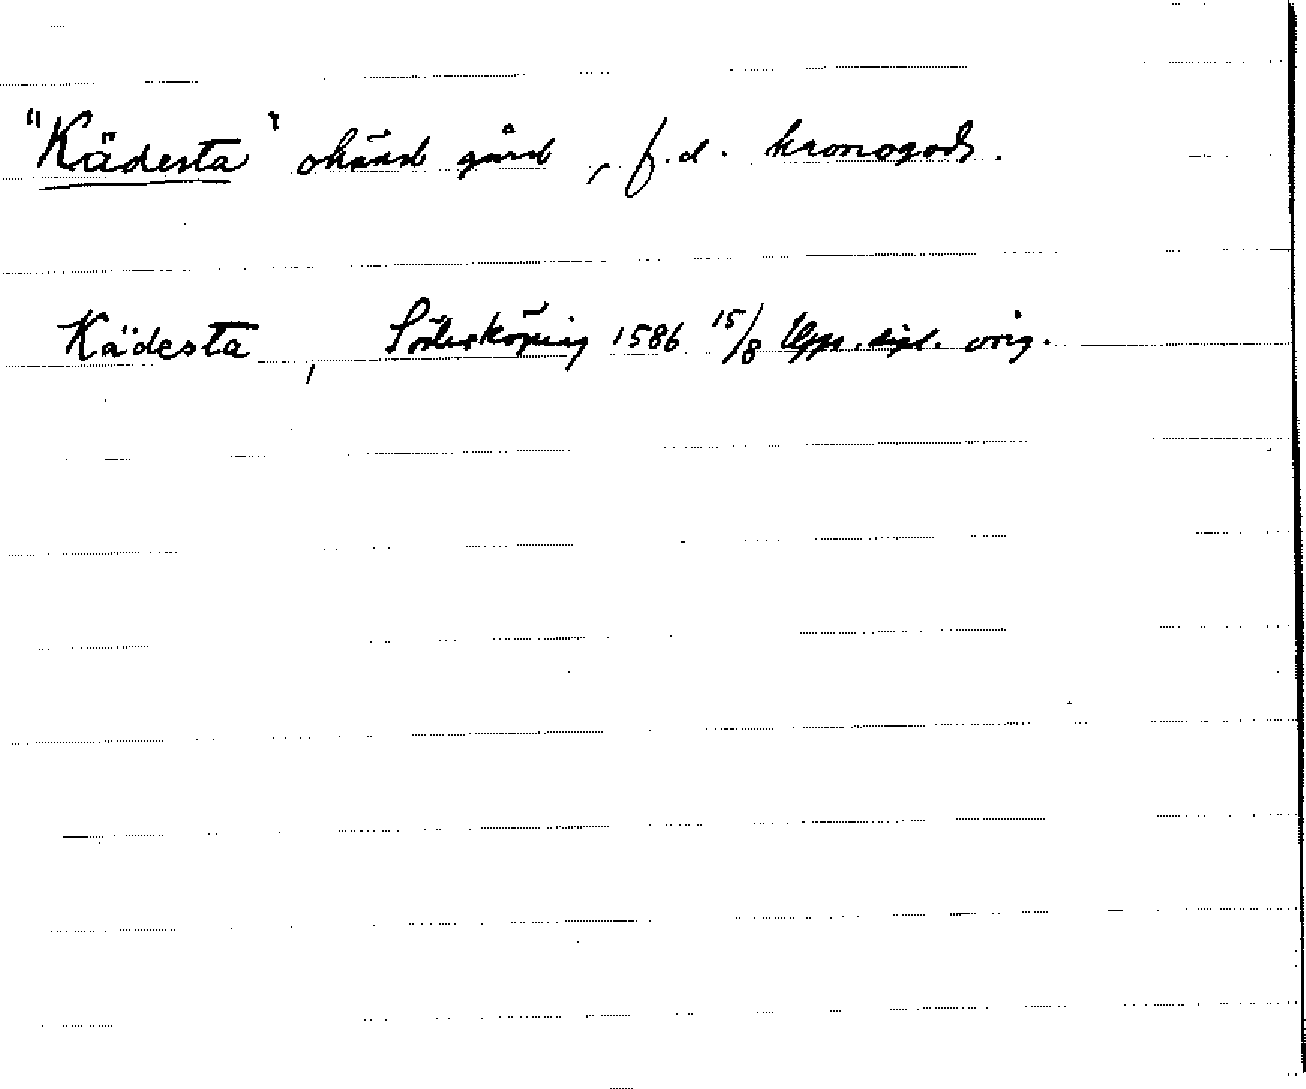 "Kädesta" okänd gård, f.d. kronogods.
Kädesta, Söderköping 1586 15/8 Upps. dipl. orig.